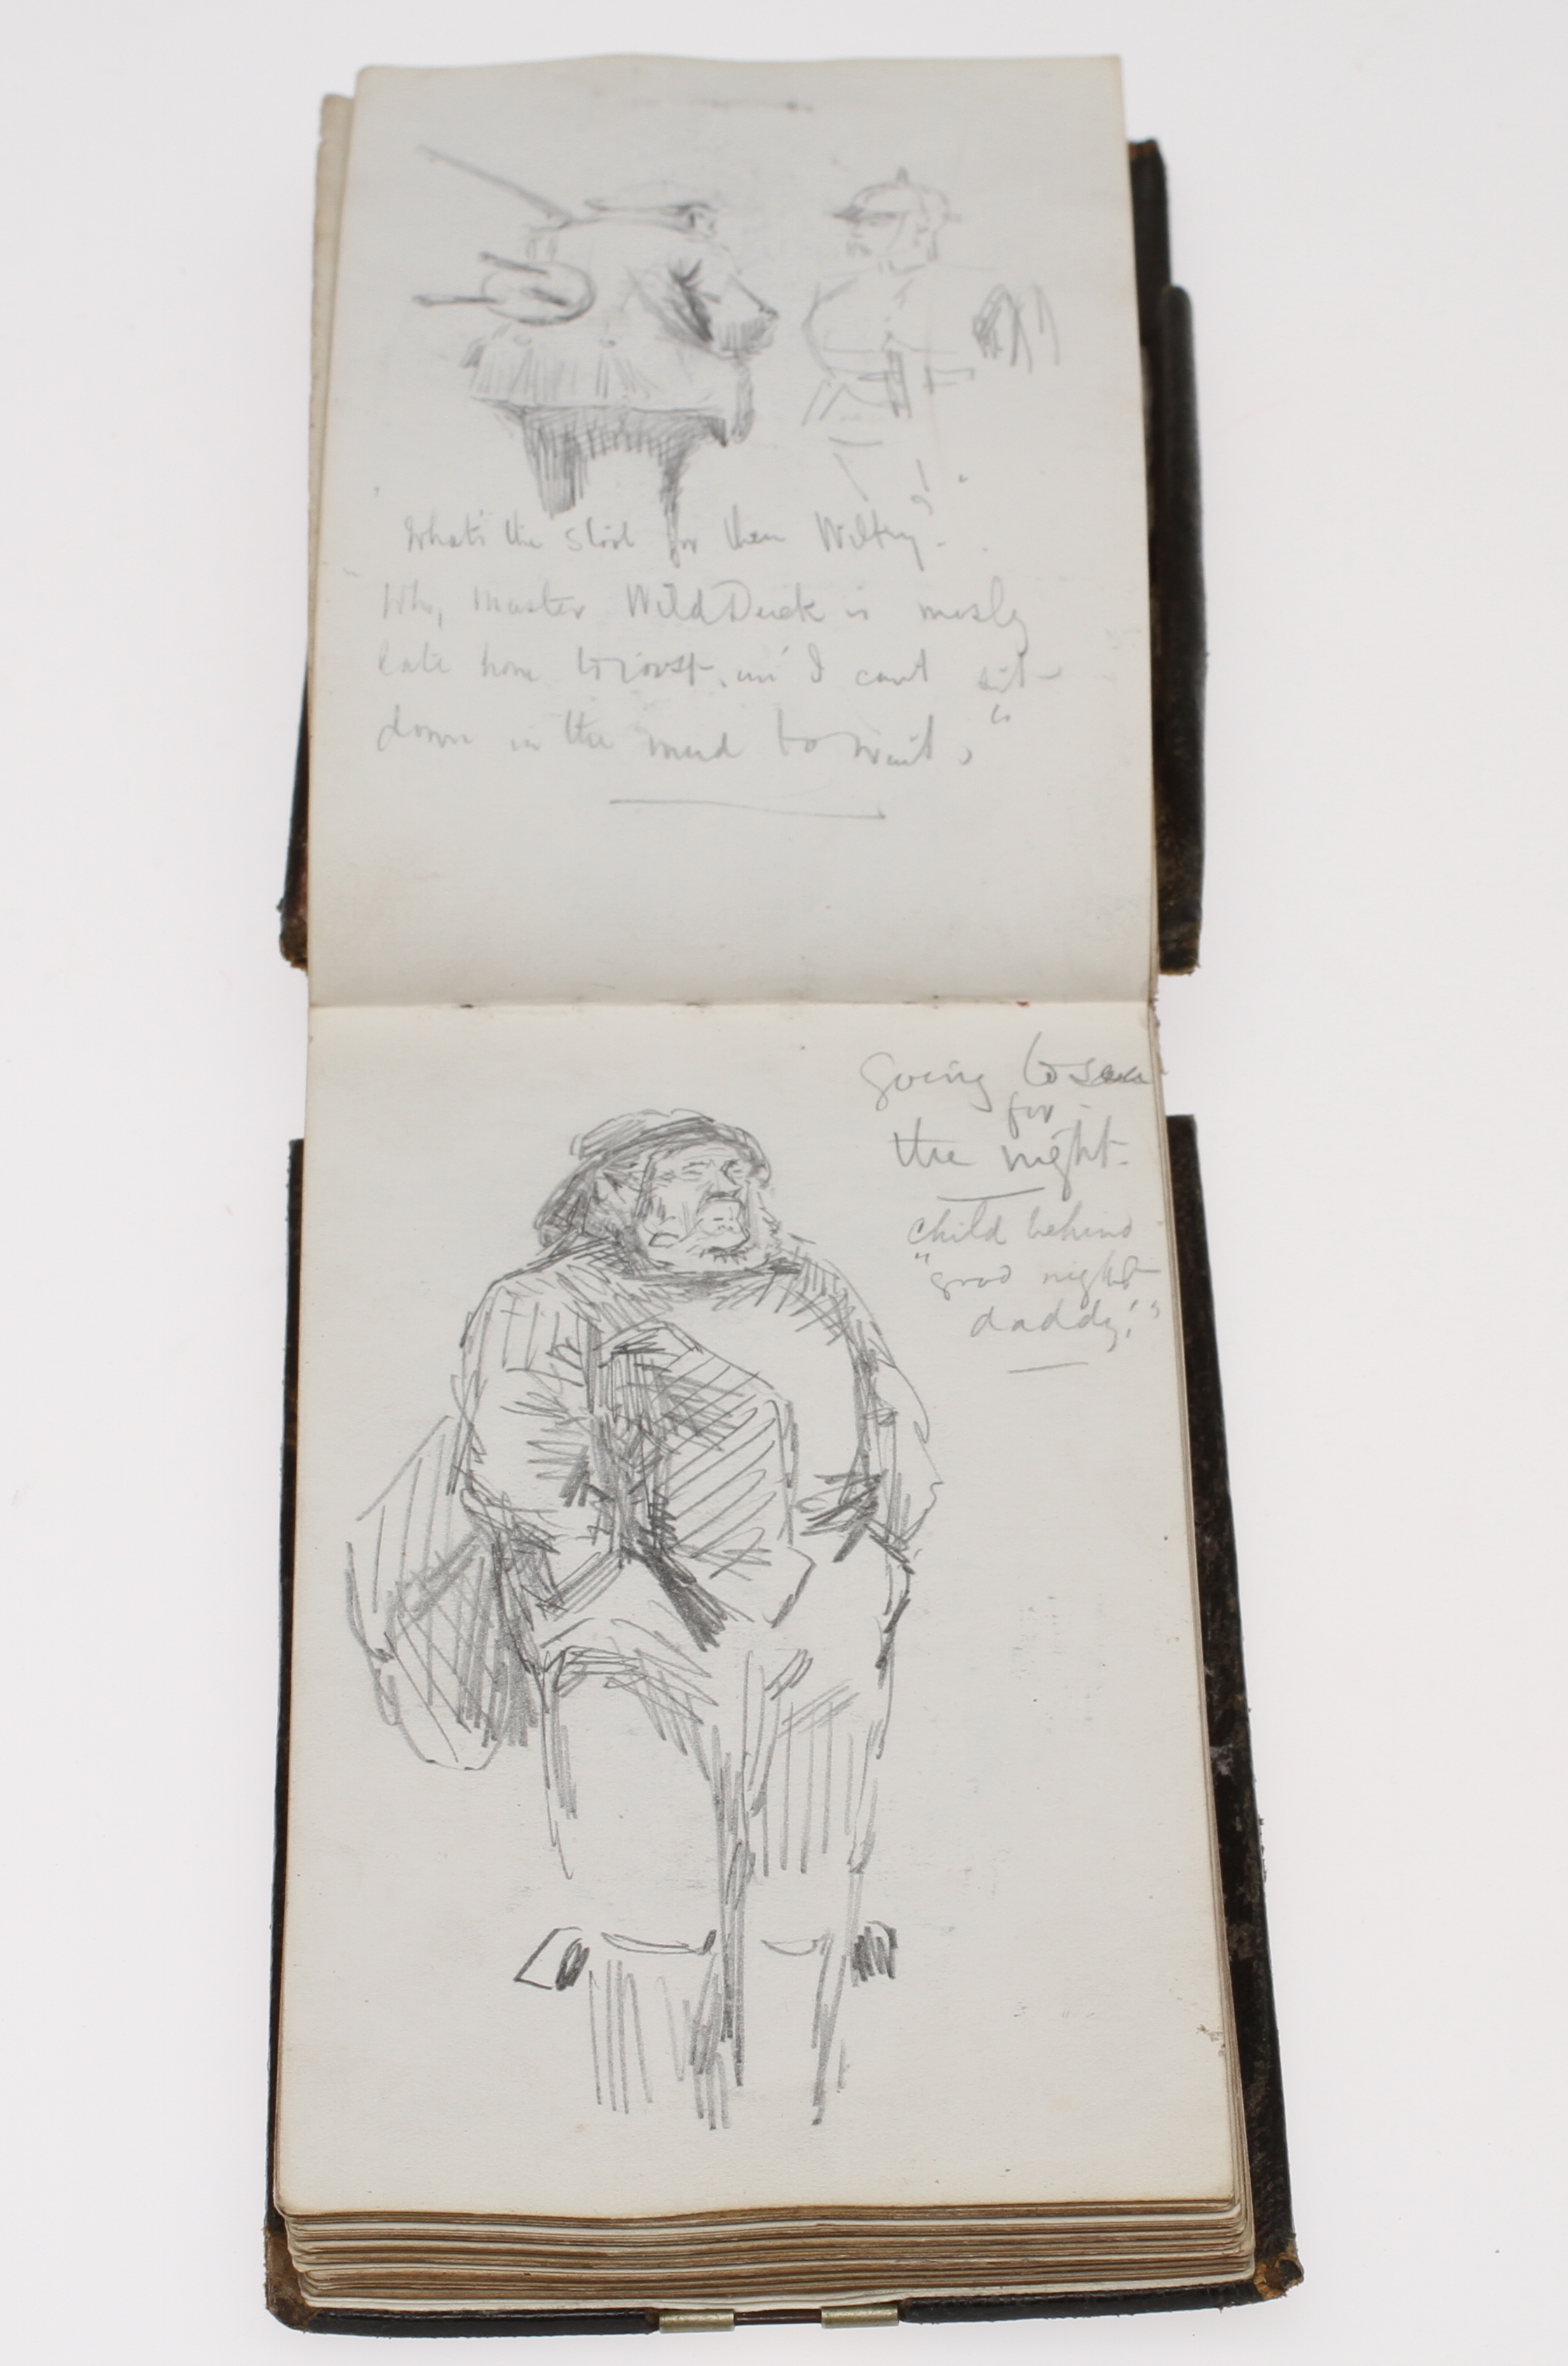 "What's the stool for then Wilkny?"
"Why, Master Wild Duck is mosly
late home to roost, an' I can't sit
down in the mud to wait,"
Going to sea
for
the night.
child behind
"good night
daddy!"